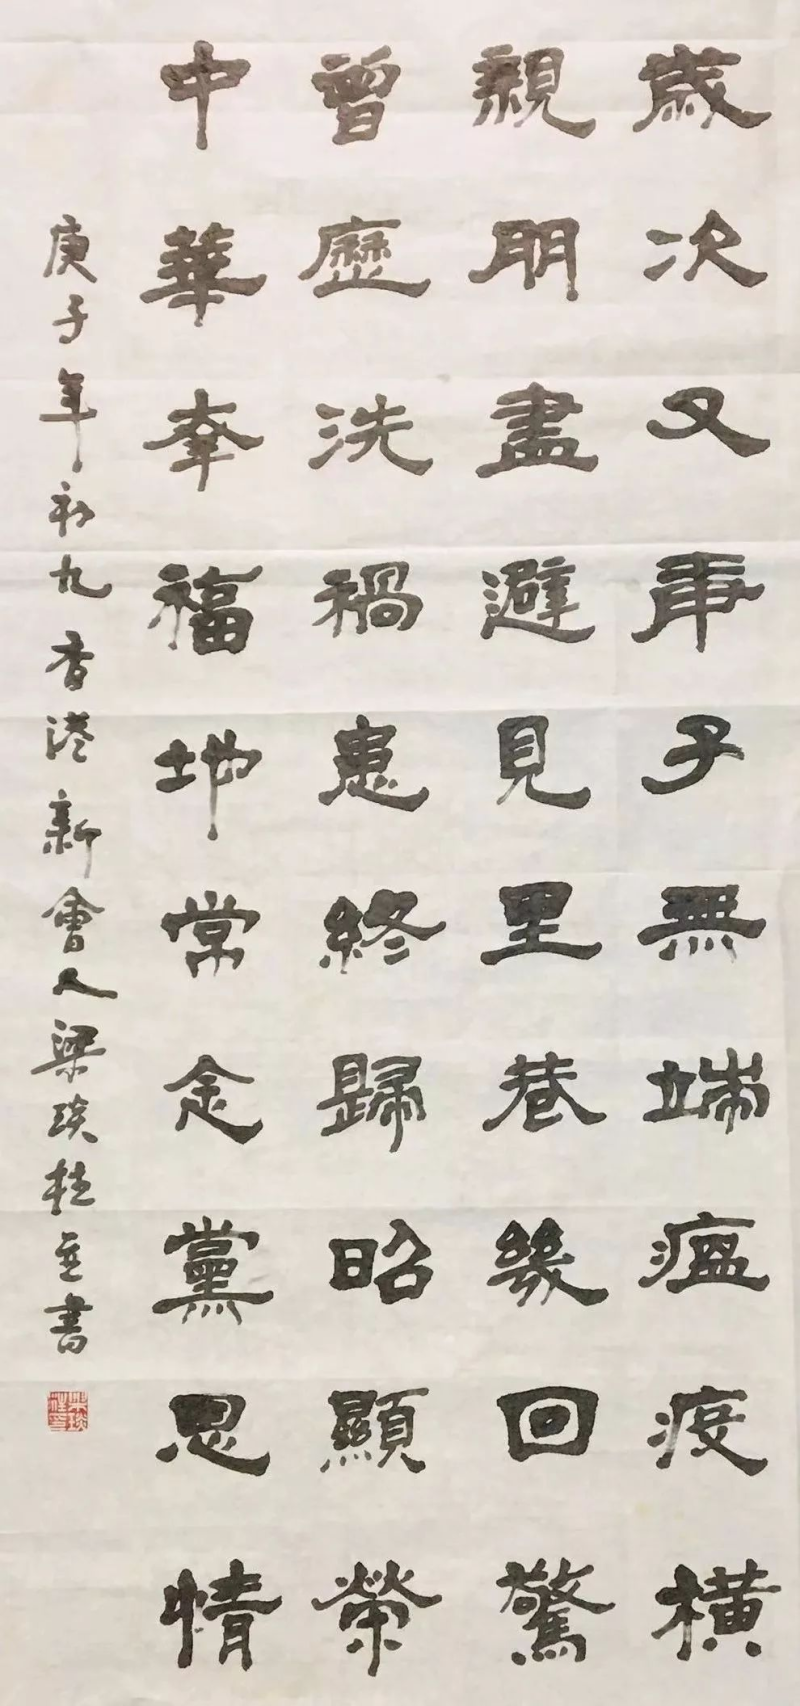 歲次又庚子無端瘟疫橫
親朋盡避見里巷幾回驚
曾歷洗禍患終歸昭顯榮
中華幸福地常念黨恩情
庚子年初九香港新會人梁琰柱書